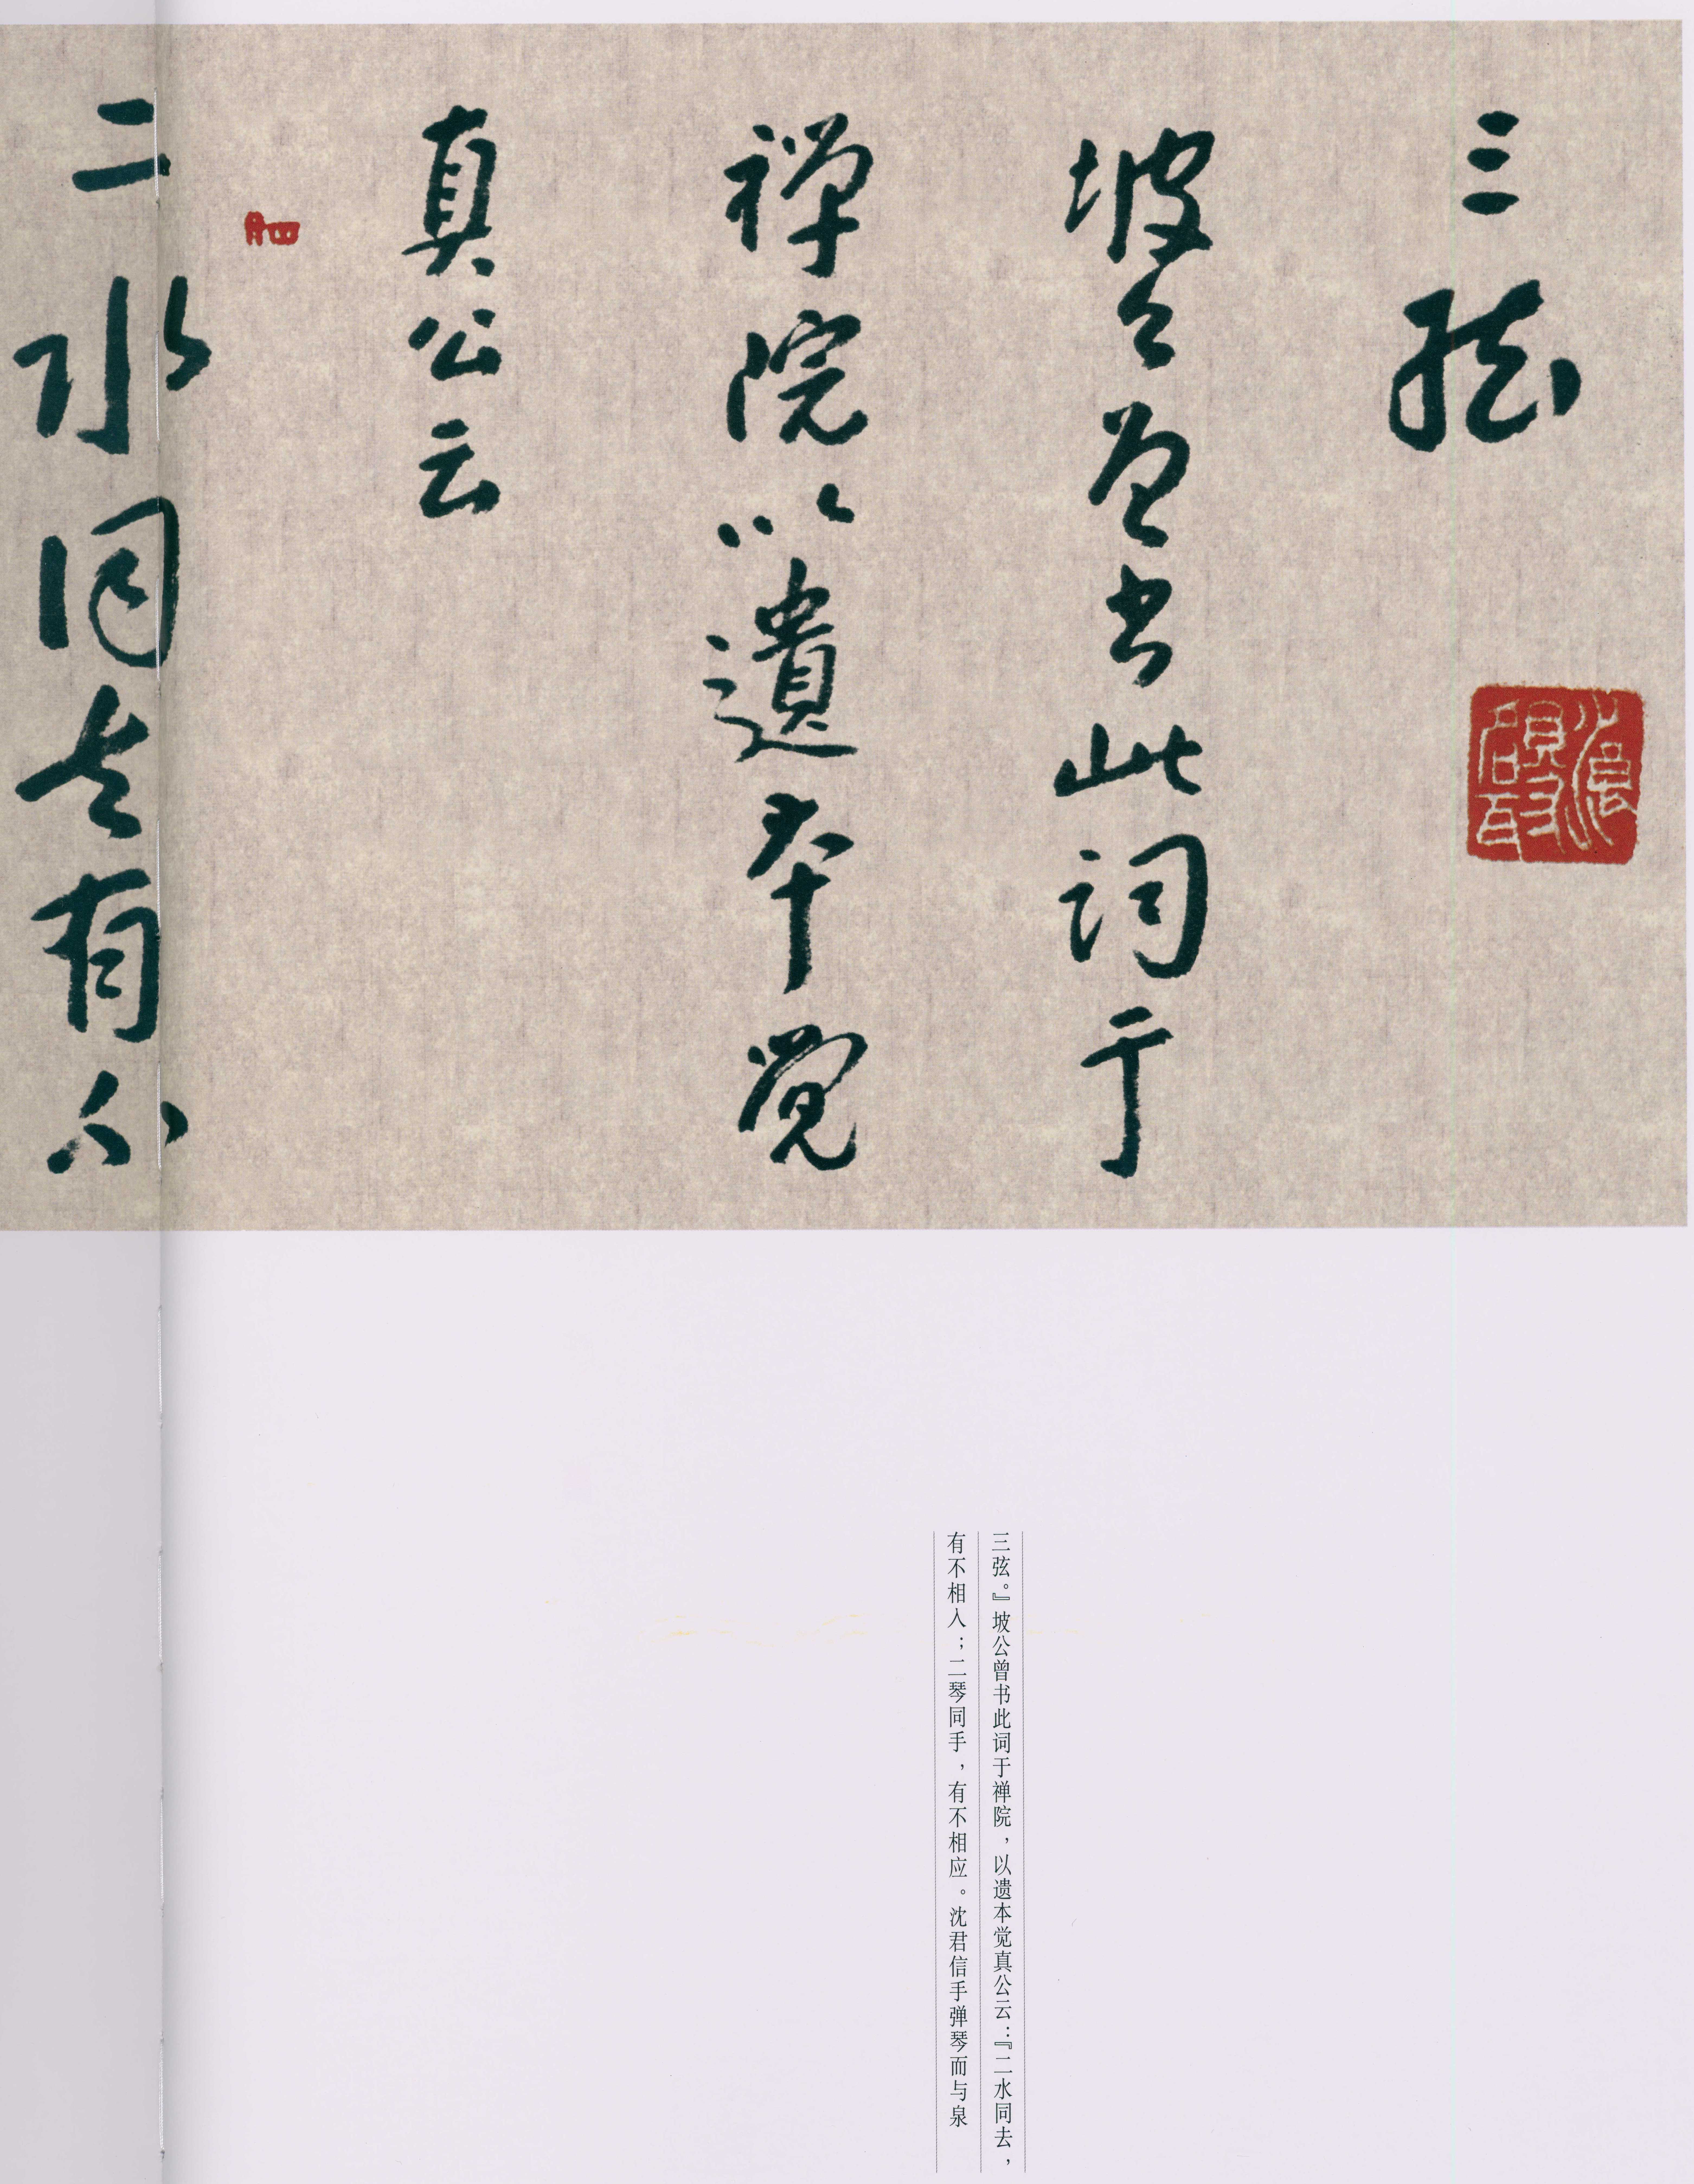 三弦
坡公曾书此词于
禅院以遺本觉
真公云
二水同去有不
三弦。』坡公曾书此词于禅院，以遗本觉真公云：『二水同去，
有不相入；二琴同手，有不相应。沈君信手弹琴而与泉